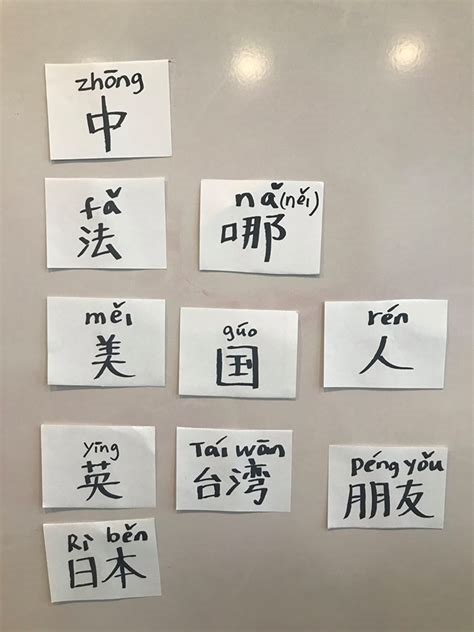 zhōng
中
fǎ
法
nǎ(něi)
哪
měi
美
gúo
国
rén
人
yīng
英
Tái wān
台湾
péng yǒu
朋友
Rì běn
日本